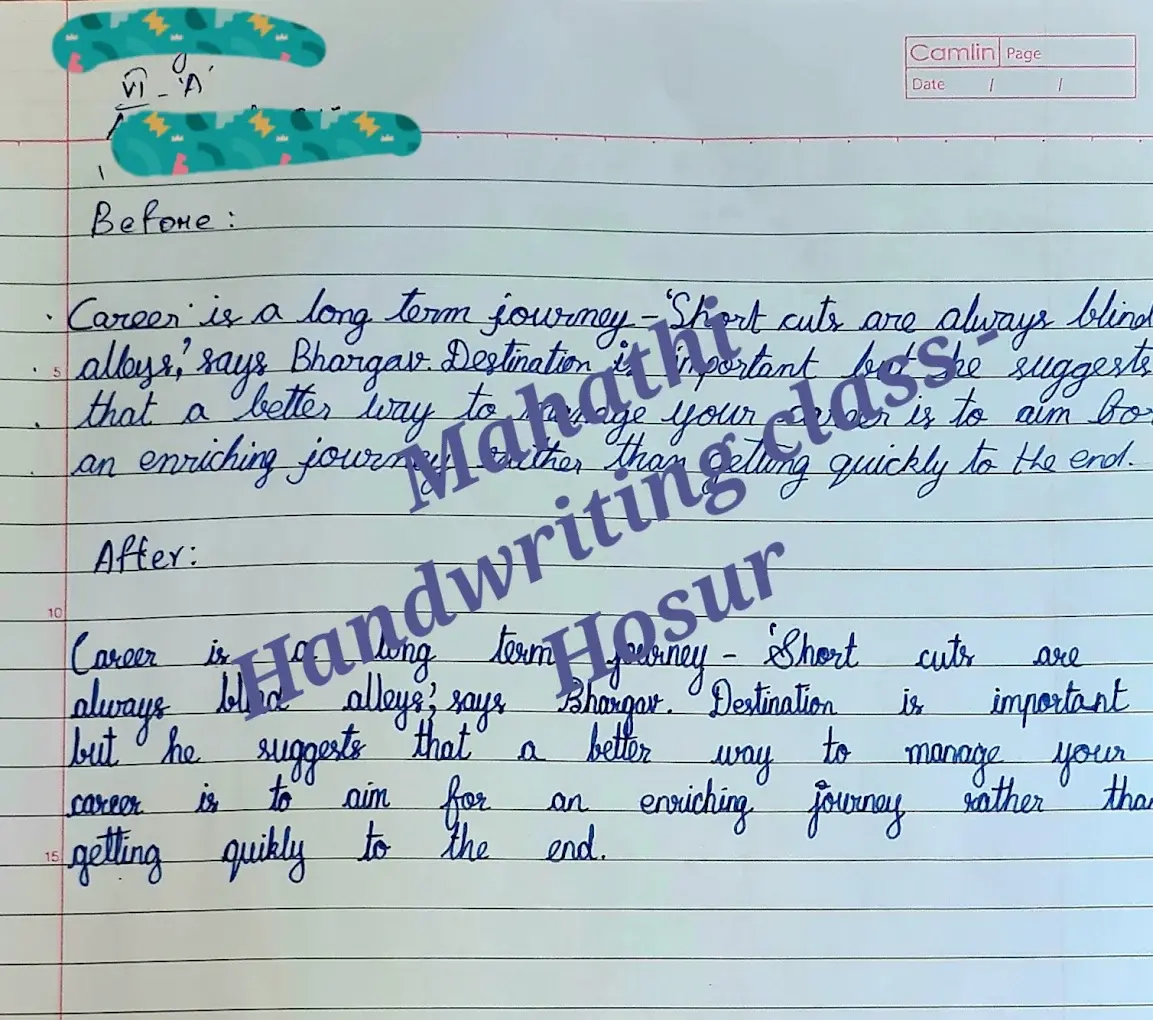 VI - 'A'
Camlin Page
Date / /
Before:
Career is a long term journey - 'Short cuts are always blind
5 alleys,' says Bhargav. Destination is important but he suggests
that a better way to manage your career is to aim for
an enriching journey rather than getting quickly to the end.
After:
10
Career is a long term journey - 'Short cuts are
always blind alleys,' says Bhargav. Destination is important
but he suggests that a better way to manage your
career is to aim for an enriching journey rather tha
15 getting quikly to the end.
Mahathi
Handwriting class -
Hosur